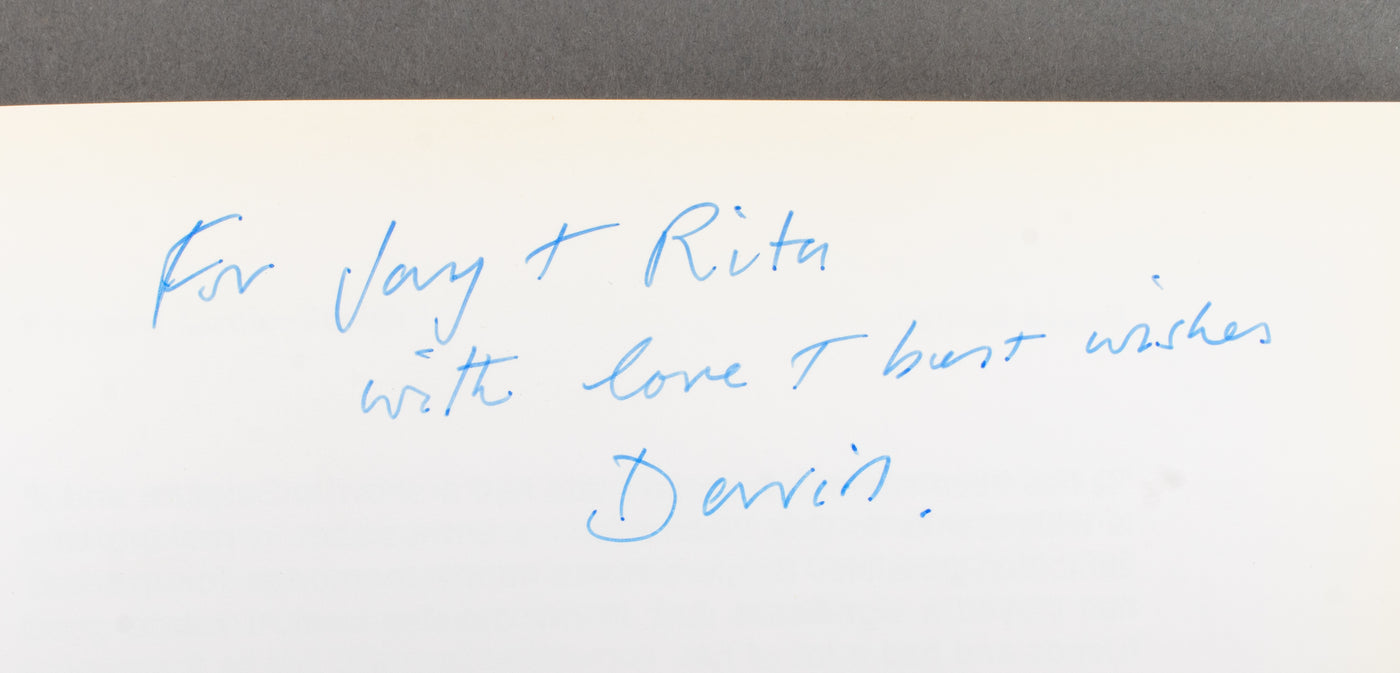 For Jay + Rita
with love + best wishes